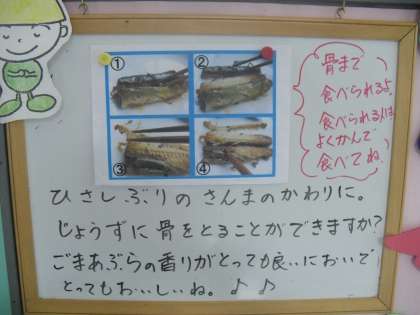 ①
②
③
④
骨まで
食べられるよ。
食べられる人は
よくかんで
食べてね。
ひさしぶりのさんまのかわりに。
じょうずに骨をとることができますか?
ごまあぶらの香りがとっても良いにおいで
とってもおいしいね。♪♪